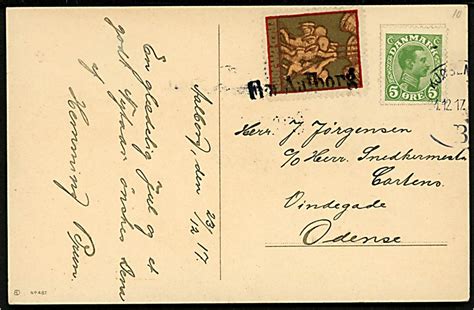 En glædelig Jul og et
godt Nytaar ønskes Dem
af
Henning Bruun.
Aalborg, den 23/12 17.
Fra Aalborg
DANMARK
5 ØRE 5
1.12.17.
10
Herr J. Jørgensen
c/o Herr. Snedkermester
Cartens.
Vindegade
Odense